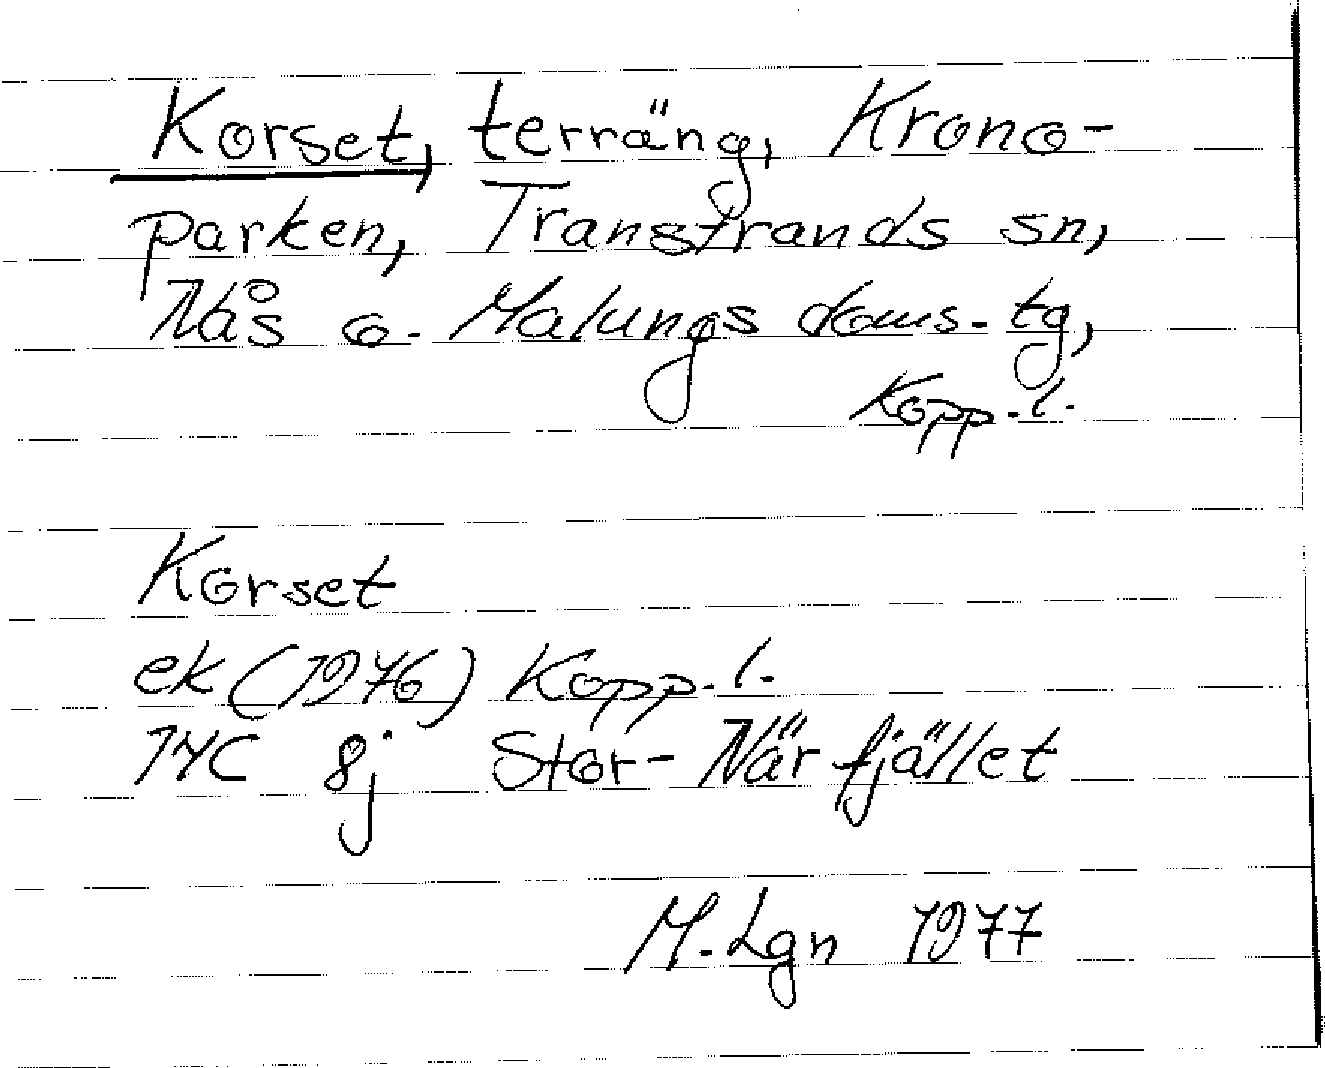 Korset, terräng, Krono-
parken, Transtrands sn,
Nås o. Malungs doms. tg,
Kopp. l.
Korset
ek (1976) Kopp. l.
14C 8j Stor-Närfjället
M. Lgn 1977